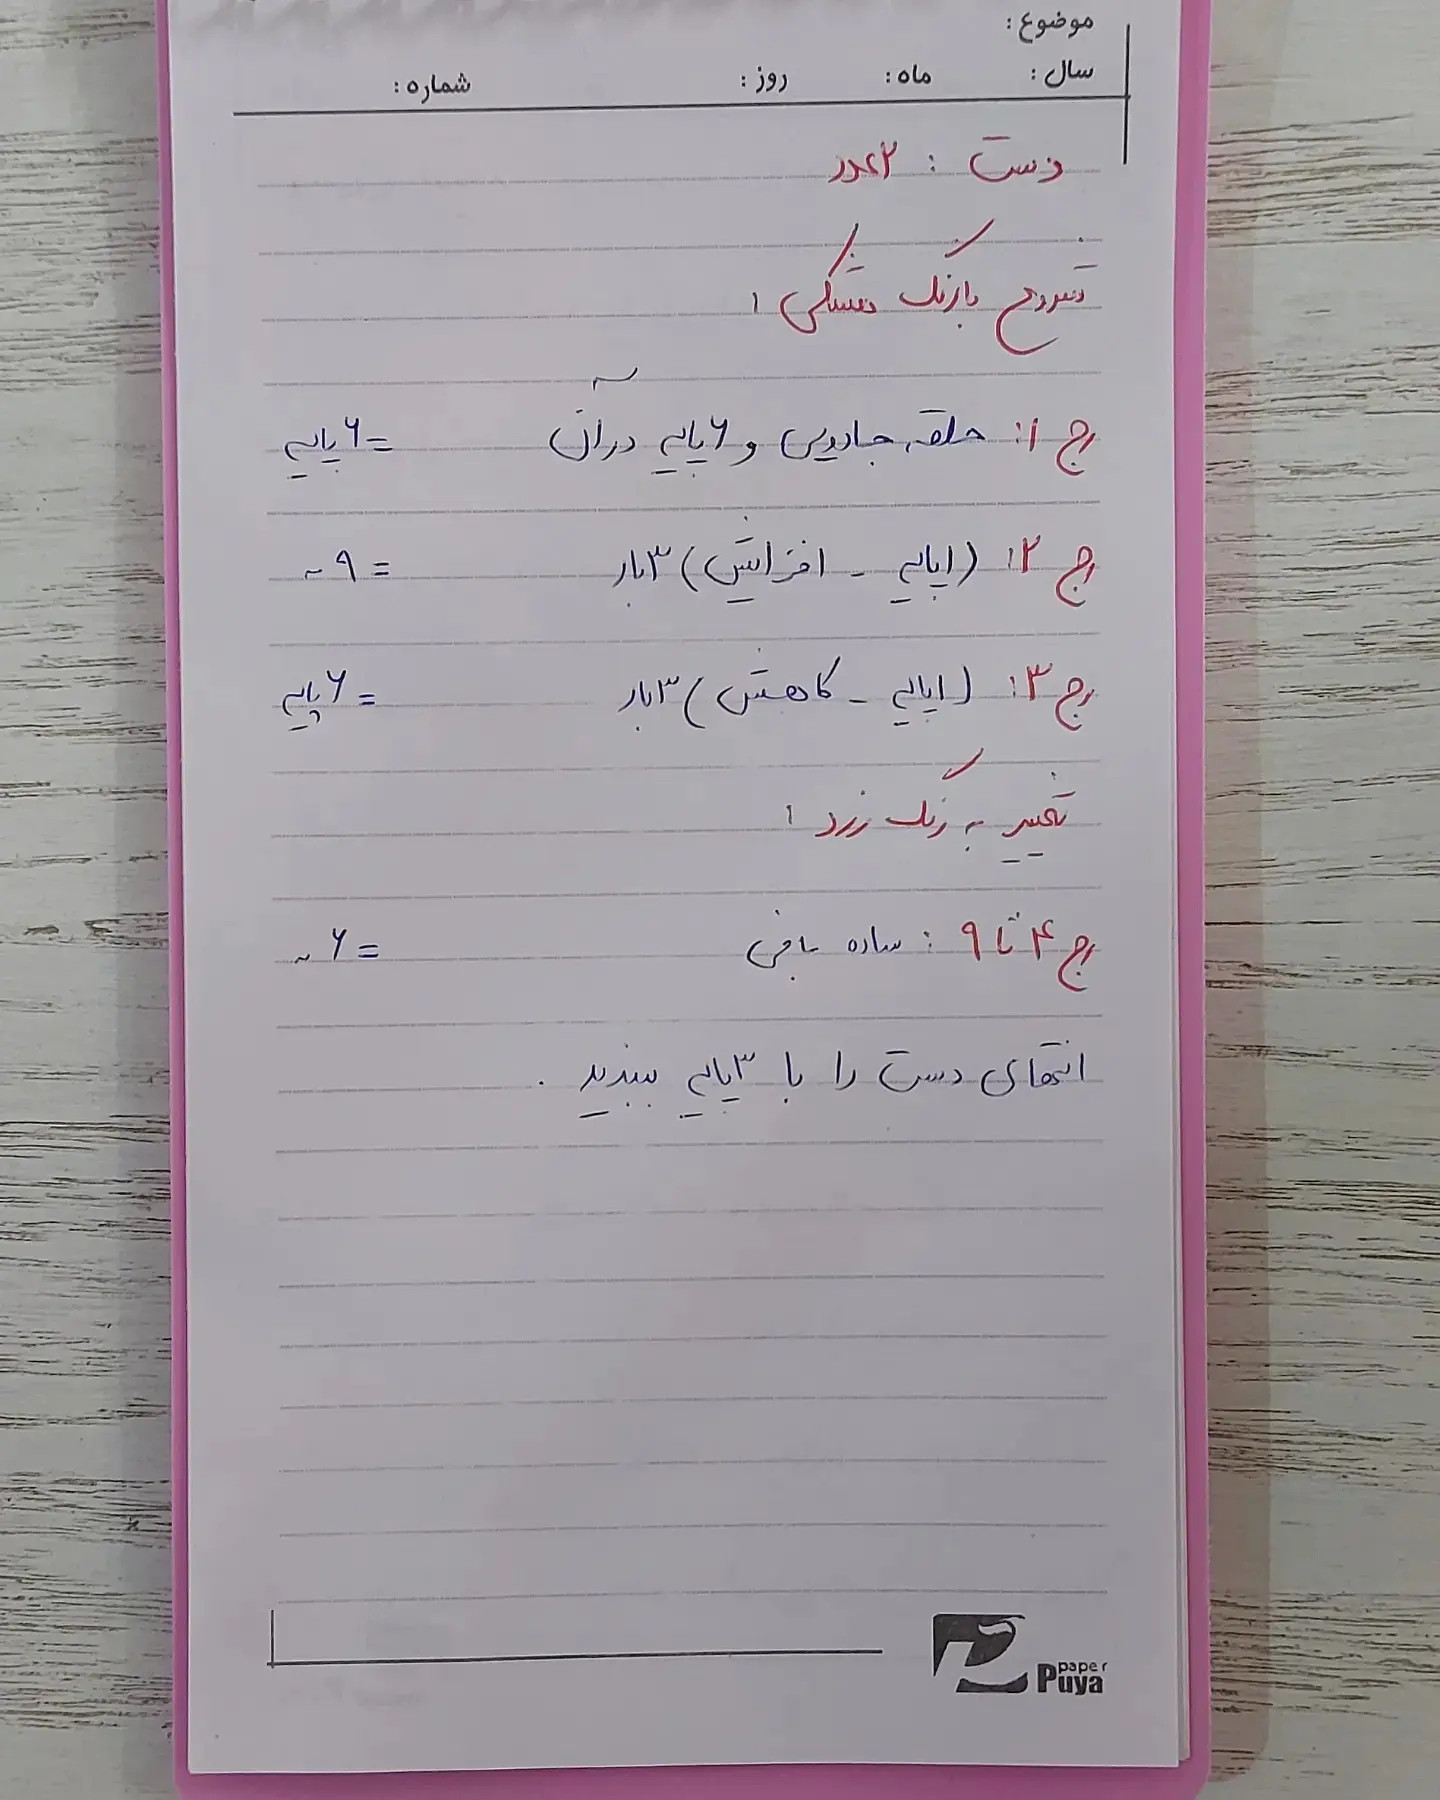 موضوع:
سال: ماه: روز: شماره:
دست: ۲عدد
شروع با رنگ مشکی:
رج ۱: حلقه جادویی و ۶پایه در آن =۶پایه
رج ۲: (۱پایه - افزایش) ۳بار = ۹~
رج ۳: (۱پایه - کاهش) ۳بار =۶پایه
تغییر به رنگ زرد:
رج ۴ تا ۹: ساده بافی =۶~
انتهای دست را با ۳پایه ببندید.
paper
Puya